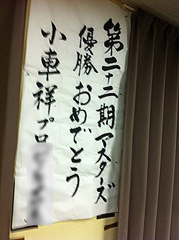 第二十二期マスターズ
優勝おめでとう
小車祥プロ